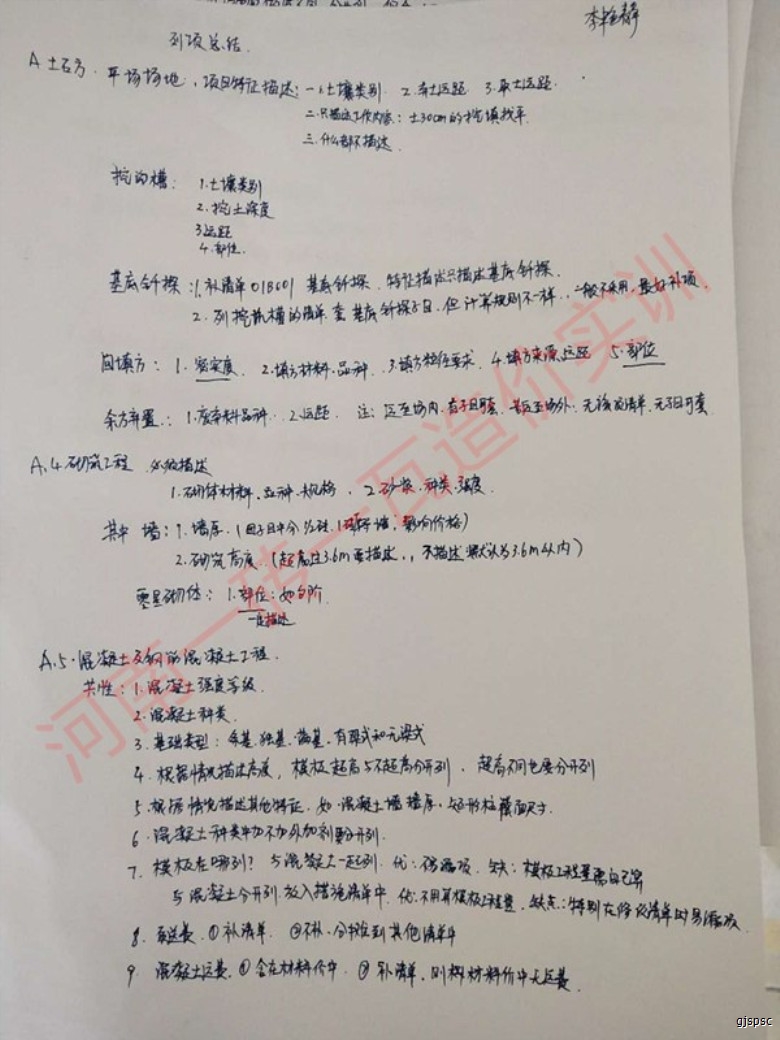 列项总结.
A 土石方. 平场场地, 项目特征描述: 一. 1.土壤类别 2.弃土运距 3.取土运距.
二.只描述工作内容: ±30cm的挖填找平.
三.什么都不描述.
挖沟槽: 1.土壤类别
2.挖土深度
3运距
4.部位.
基底钎探: 1.补清单01B001 基底钎探. 特征描述只描述基底钎探.
2.列挖沟槽的清单.套基底钎探子目,但计算规则不一样, 一般不采用,最好补项.
回填方: 1.密实度 2.填方材料.品种. 3.填方粒径要求. 4.填方来源,运距 5.部位
余方弃置: 1.废弃料品种. 2.运距. 注:运至场内,有子目可套, 若运至场外,无该项清单,无子目可套
A.4砌筑工程 必须描述
1.砌体材料.品种.规格, 2砂浆.种类.强度.
其中 墙: 1.墙厚.
2.砌筑高度. (超高过3.6m要描述,, 不描述默认为3.6m以内)
零星砌体: 1.部位:如台阶
一定描述
A.5.混凝土及钢筋混凝土工程.
共性: 1.混凝土强度等级.
2.混凝土种类.
3.基础类型: 条基.独基.筏基.有梁式和无梁式
4.根据情况描述高度, 模板超高与不超高分开列. 超高不同也要分开列
5.根据情况描述其他特征. 如.混凝土墙墙厚.矩形柱截面尺寸.
6.混凝土种类中加不加外加剂要分开列.
7.模板在哪列? 与混凝土一起列. 优:不易漏项. 缺:模板工程量需自己算
与混凝土分开列.放入措施清单中. 优:不用算模板工程量. 缺点:特别在修改清单时易漏项.
8.泵送费.①补清单. ②不补.分摊到其他清单中
9.混凝土运费.①含在材料价中. ②补清单,则材料价中无运费.
河南一砖一瓦造价实训
gjspsc